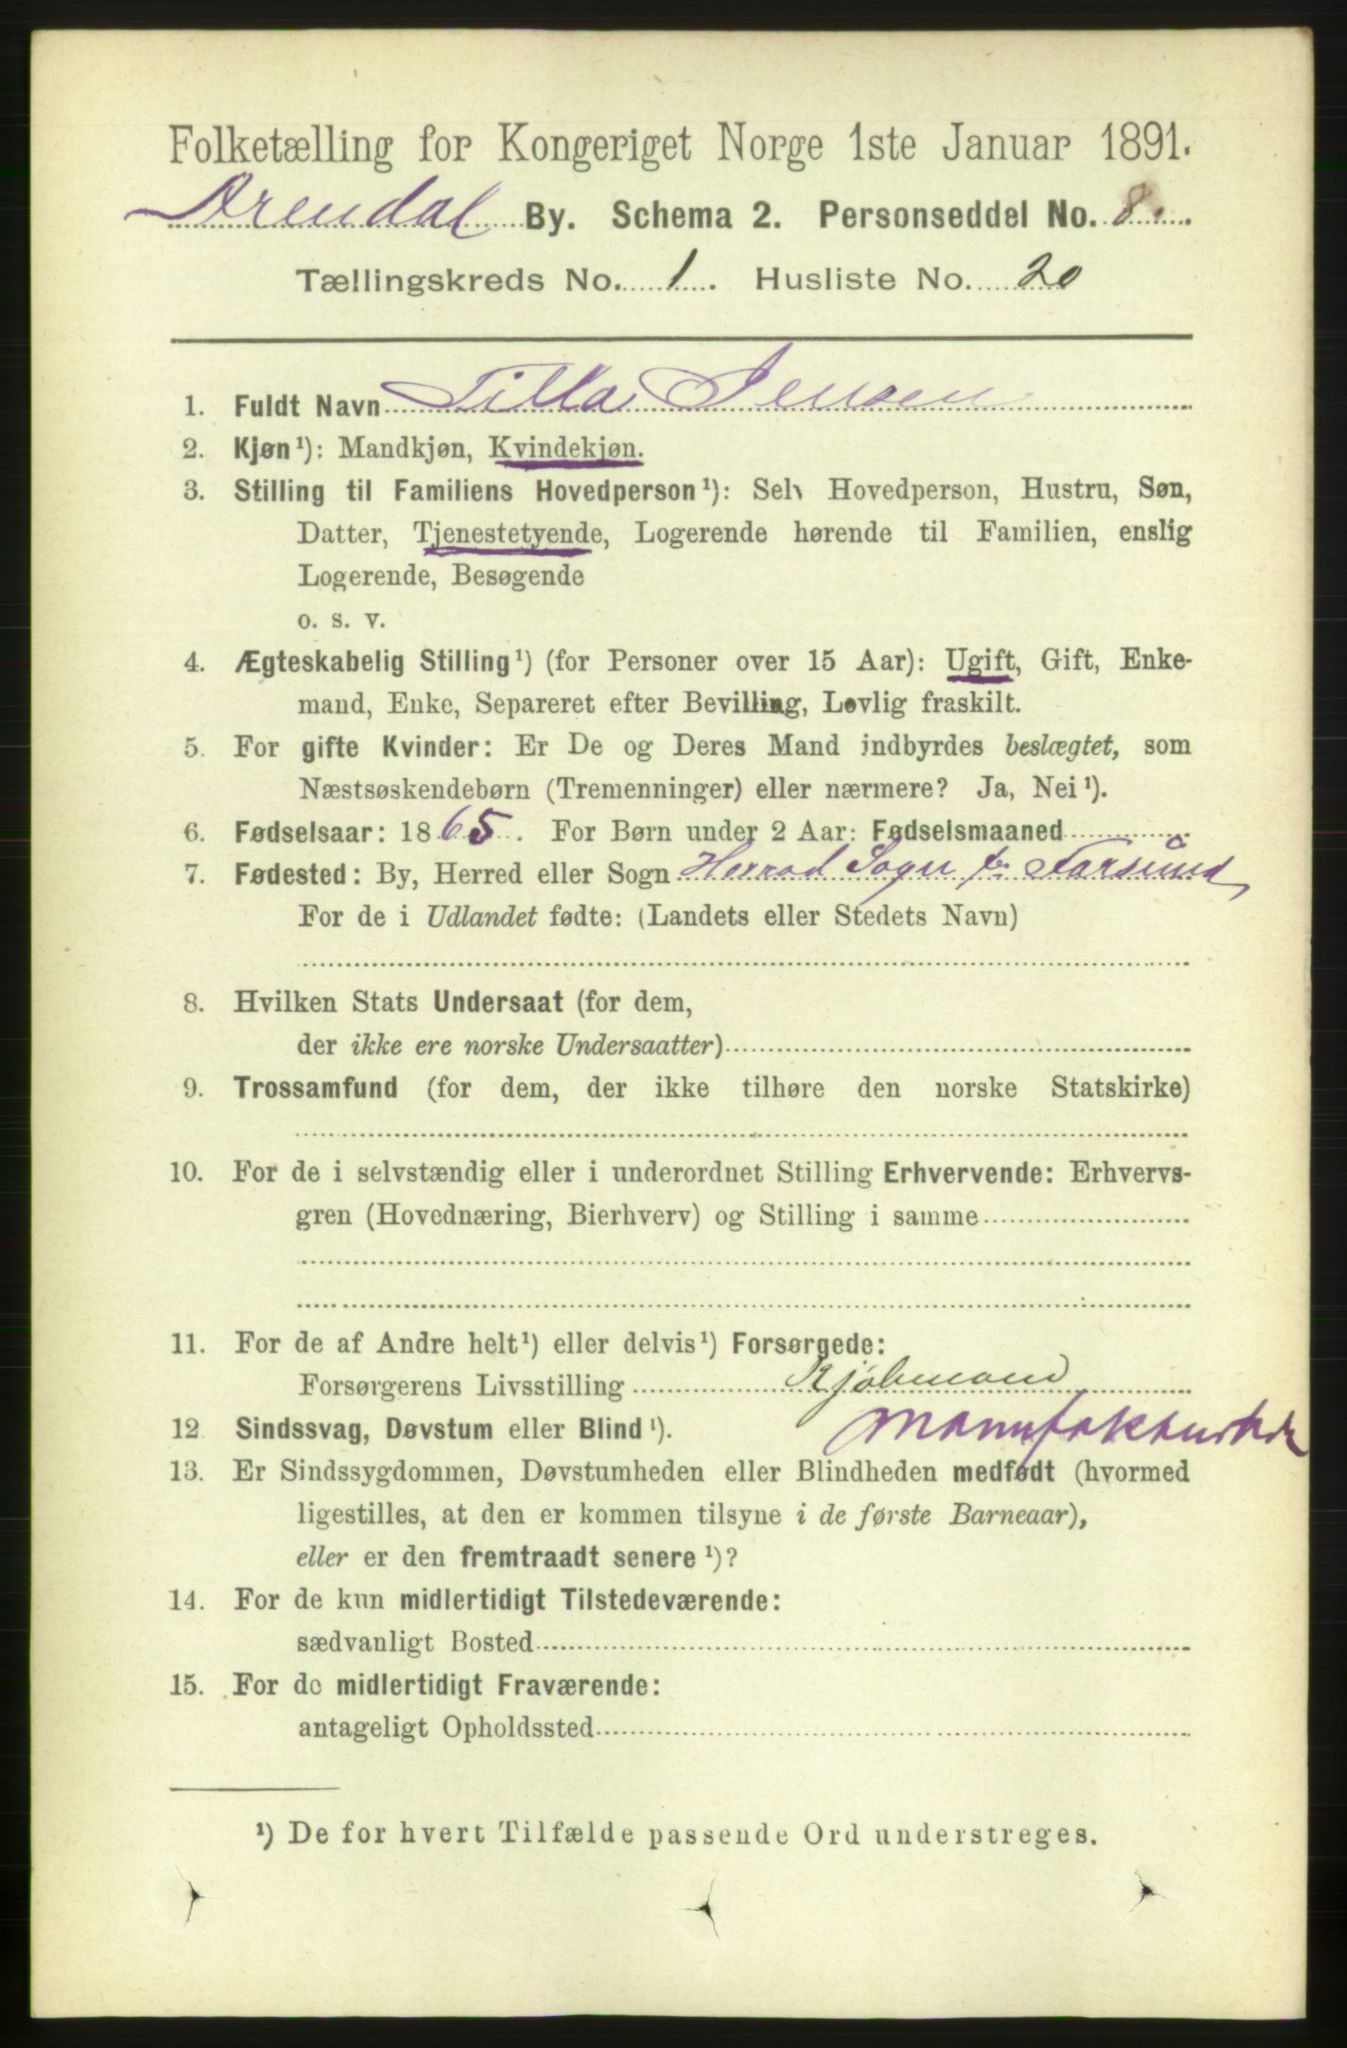 Folketælling for Kongeriget Norge 1ste Januar 1891.
Arendal By. Schema 2. Personseddel No. 8.
Tællingskreds No. 1. Husliste No. 20
1. Fuldt Navn Tilla Jensen
2. Kjøn¹): Mandkjøn, Kvindekjøn.
3. Stilling til Familiens Hovedperson¹): Selv Hovedperson, Hustru, Søn,
Datter, Tjenestetyende, Logerende hørende til Familien, enslig
Logerende, Besøgende
o. s. v.
4. Ægteskabelig Stilling¹) (for Personer over 15 Aar): Ugift, Gift, Enke-
mand, Enke, Separeret efter Bevilling, Lovlig fraskilt.
5. For gifte Kvinder: Er De og Deres Mand indbyrdes beslægtet, som
Næstsøskendebørn (Tremenninger) eller nærmere? Ja, Nei¹).
6. Fødselsaar: 1865. For Børn under 2 Aar: Fødselsmaaned
7. Fødested: By, Herred eller Sogn Herrad Sogn pr Farsund
For de i Udlandet fødte: (Landets eller Stedets Navn)
8. Hvilken Stats Undersaat (for dem,
der ikke ere norske Undersaatter)
9. Trossamfund (for dem, der ikke tilhøre den norske Statskirke)
10. For de i selvstændig eller i underordnet Stilling Erhvervende: Erhvervs-
gren (Hovednæring, Bierhverv) og Stilling i samme
11. For de af Andre helt¹) eller delvis¹) Forsørgede:
Forsørgerens Livsstilling Kjøbmand
12 Sindssvag, Døvstum eller Blind¹).
13. Er Sindssygdommen, Døvstumheden eller Blindheden medfødt (hvormed
ligestilles, at den er kommen tilsyne i de første Barneaar),
eller er den fremtraadt senere¹)?
14. For de kun midlertidigt Tilstedeværende:
sædvanligt Bosted
15. For de midlertidigt Fraværende:
antageligt Opholdssted
¹) De for hvert Tilfælde passende Ord understreges.